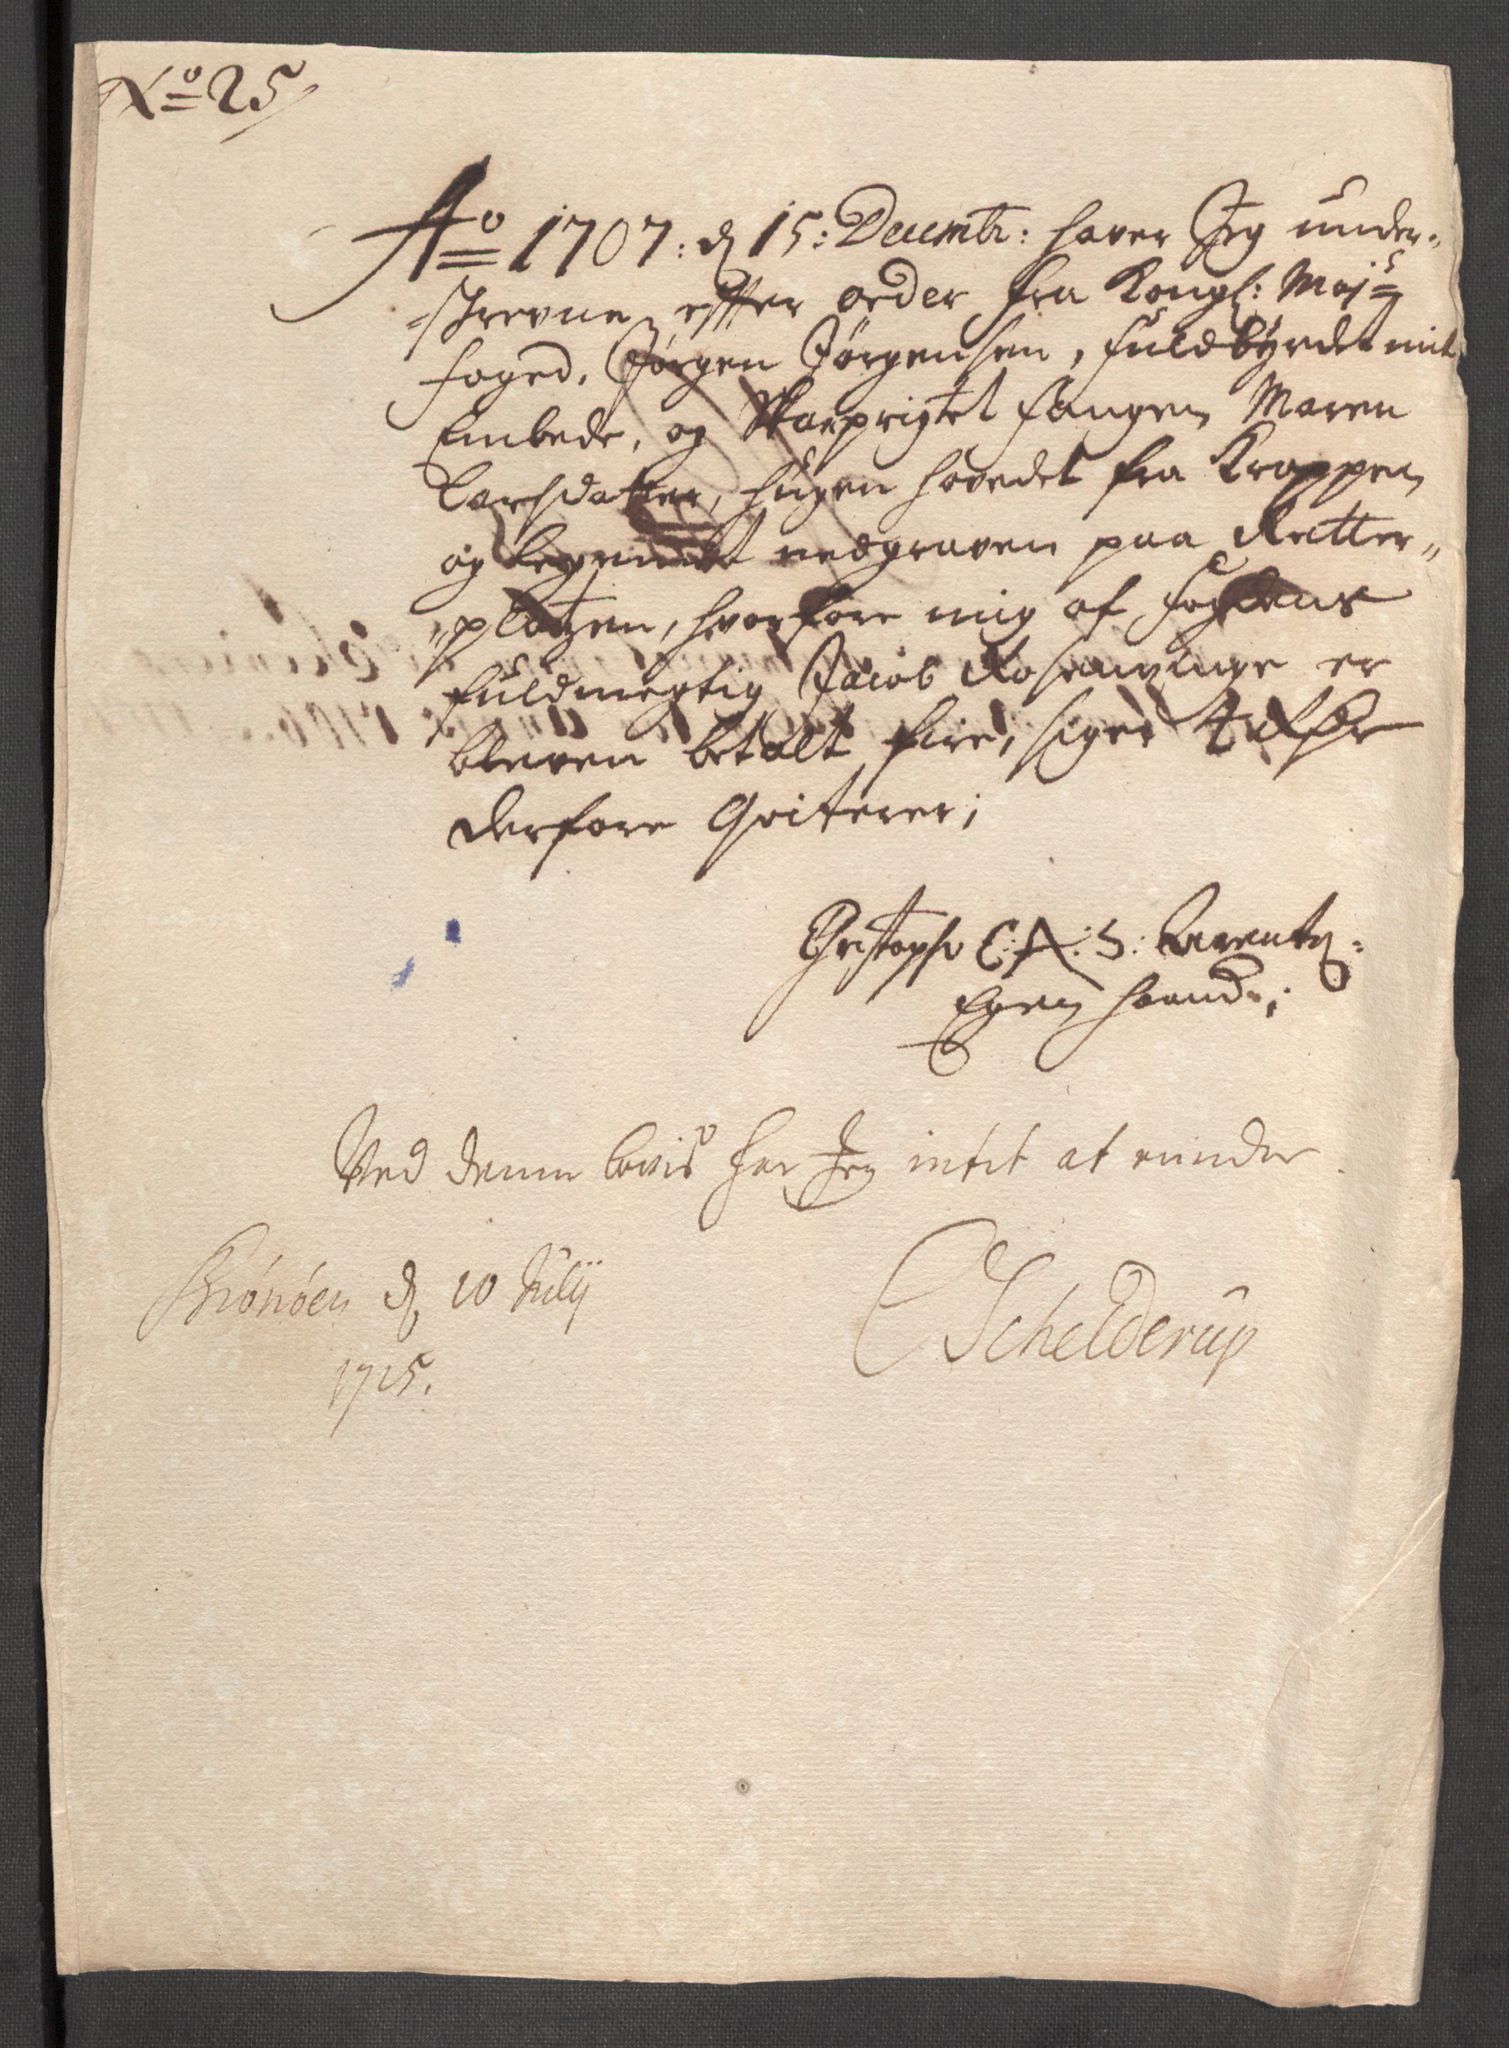 No 25
Ao 1707: d 15: Decembr: hafver Jeg under-
-skrevne efter order fra Kongl: Majts
foged, Jørgen Jørgensen, fuldbyrdet mit
Embede, og Skarprigtet fangen Maren
Larsdatter, hugen hovedet fra Kroppen
og legemet nedgraven paa Retter-
-platzen, hvorfore mig af fogdens
fuldmegtig Jacob Rosenvinge er
bleven betalt fire, siger 4 Rdr
derfore Qviterer;
Christoph C: A: S: Lorentz
Egen haand;
Ved denne bevis har Jeg intet at minde
Brönöen d 10 Julij
1715.
CSchelderup